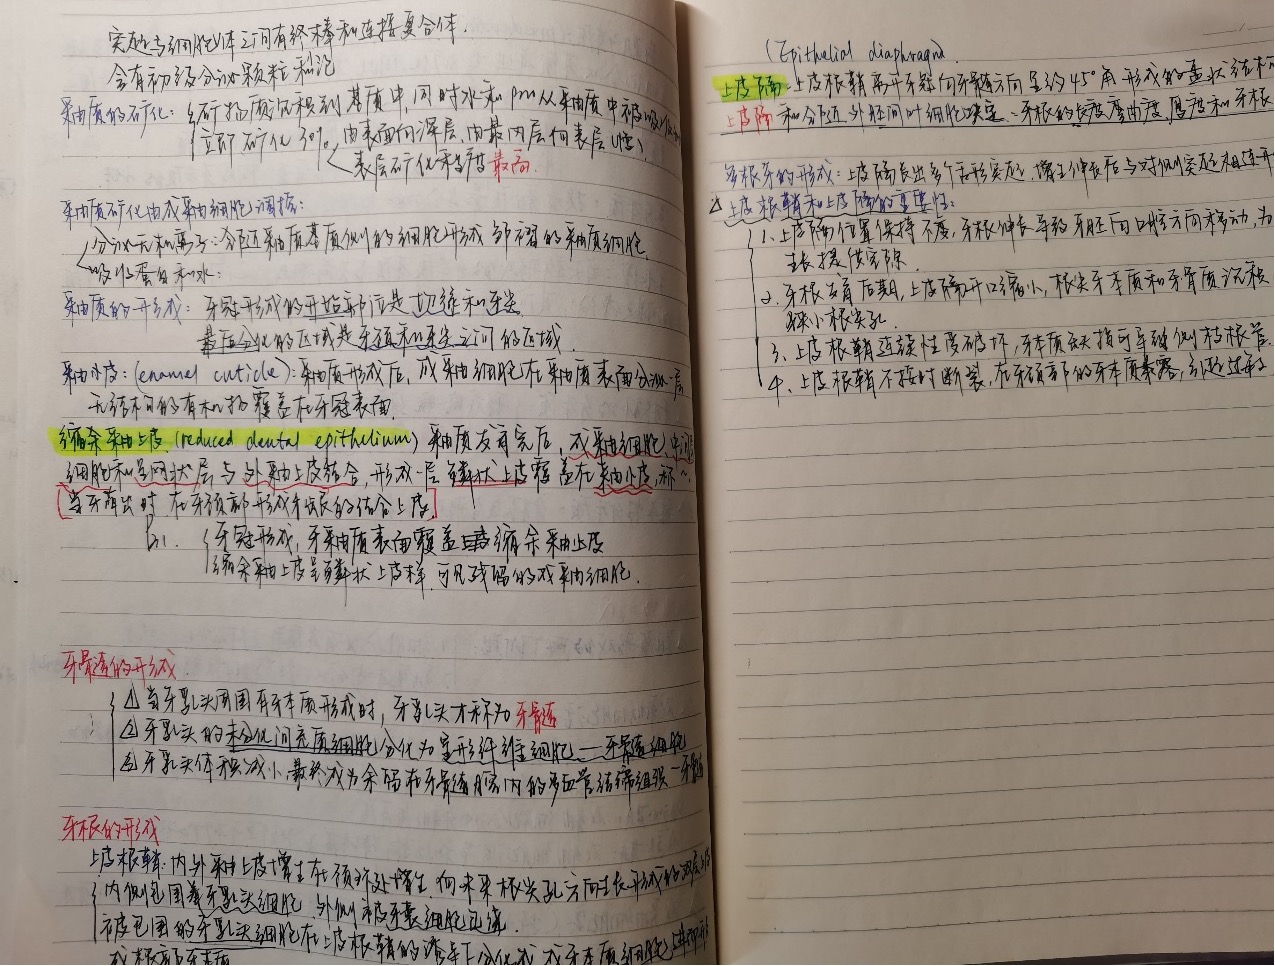 突起与细胞体之间有终棒和连接复合体.
含有初级分泌颗粒和泡
釉质的矿化: 矿物质沉积到基质中,同时水和pro从釉质中被吸
立即矿化30%. 由表面向深层,由最内层向表层(慢).
表层矿化程度最高.
釉质矿化由成釉细胞调控:
分泌无机离子:分泌釉质基质侧的细胞形成 的釉质细胞
吸收蛋白和水:
釉质的形成: 牙冠形成的开始部位是切缘和牙尖
最后分化的区域是牙颈和牙尖之间的区域.
釉小皮:(enamel cuticle):釉质形成后,成釉细胞在釉质表面分泌一层
无结构的有机物覆盖在牙冠表面.
缩余釉上皮(reduced dental epithelium) 釉质发育完后,成釉细胞、中间层
细胞和星网状层与外釉上皮结合,形成一层鳞状上皮覆盖在釉小皮,称~
[当牙萌出时 在牙颈部形成牙龈的结合上皮]
牙冠形成,牙釉质表面覆盖上皮缩余釉上皮
缩余釉上皮呈鳞状上皮样,可见残留的成釉细胞.
牙髓的形成.
① 当牙乳头周围有牙本质形成时,牙乳头才称为牙髓
② 牙乳头的未分化间充质细胞分化为星形纤维细胞——牙髓细胞
③ 牙乳头体积减小,最终成为余留在牙髓腔内的多血管结缔组织—牙髓
牙根的形成
上皮根鞘:内外釉上皮增生在颈环处增生 向未来根尖孔方向生长形成的双层
内侧包围着牙乳头细胞,外侧被牙囊细胞包绕
被包围的牙乳头细胞在上皮根鞘的诱导下分化成 成牙本质细胞进而形
成根部牙本质
(Epithelial diaphragm)
上皮隔:上皮根鞘离开牙冠向牙髓方向呈约45°角形成的盘状结构
上皮隔和分泌外胚间叶细胞决定:牙根的长度弯曲度,厚度和牙根
多根牙的形成:上皮隔长出多个舌形突起,增生伸长后与对侧突起相连
△上皮根鞘和上皮隔的重要性:
1. 上皮隔位置保持不变,牙根伸长导致牙胚向口腔方向移动,为
生长提供空隙.
2. 牙根发育后期,上皮隔开口缩小,根尖牙本质和牙骨质沉积
狭小根尖孔.
3、上皮根鞘连续性受破坏,牙本质缺损可导致侧枝根管.
4、上皮根鞘不按时断裂,在牙颈部的牙本质暴露,引起过敏